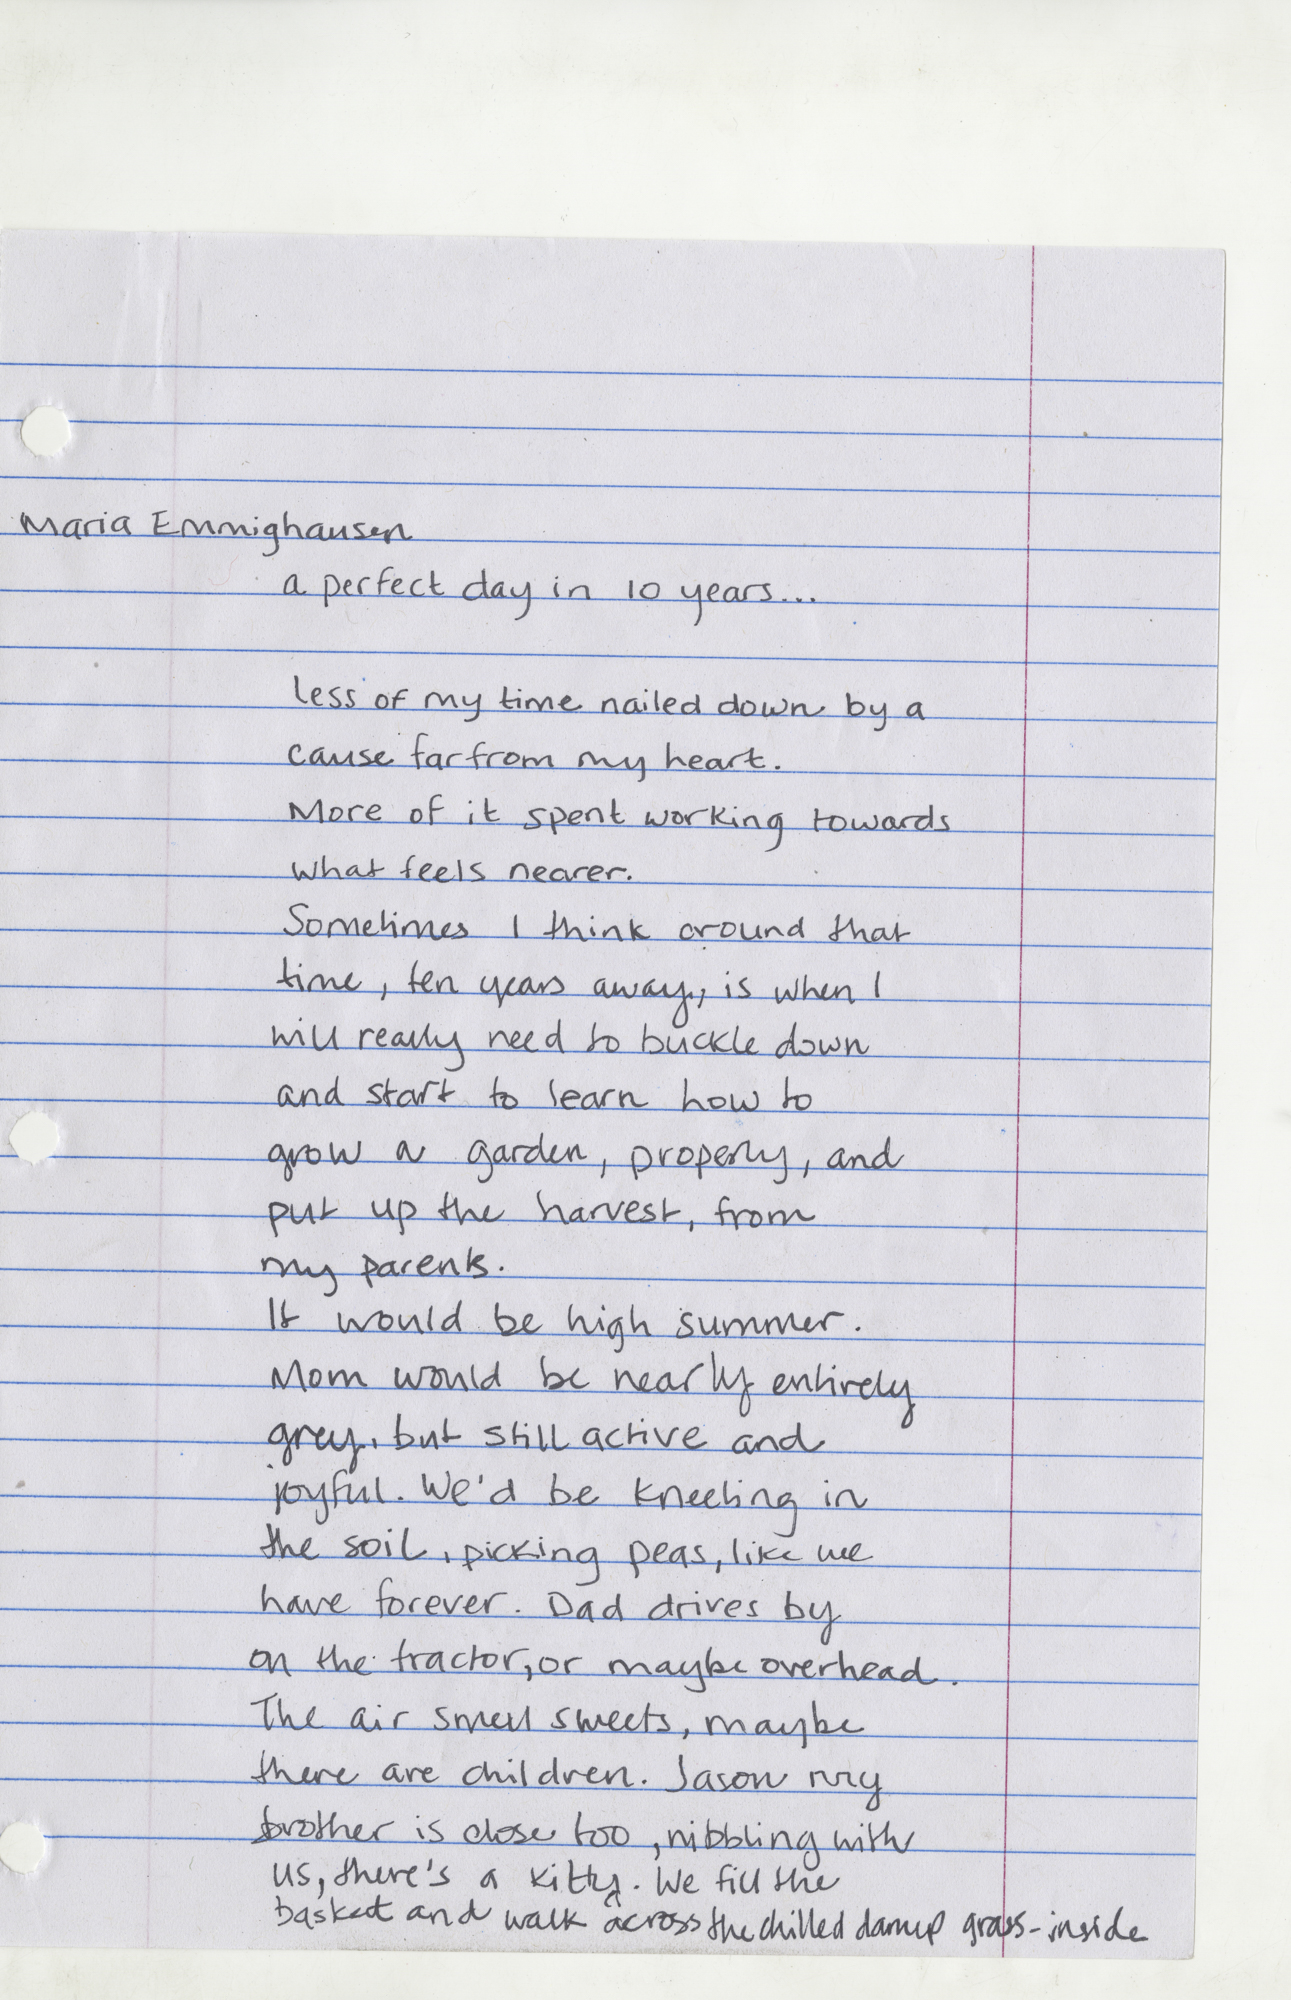 Maria Emmighausen
a perfect day in 10 years...
less of my time nailed down by a
cause far from my heart.
More of it spent working towards
what feels nearer.
Sometimes I think around that
time, ten years away, is when I
will really need to buckle down
and start to learn how to
grow a garden, properly, and
put up the harvest, from
my parents.
It would be high summer.
Mom would be nearly entirely
grey, but still active and
joyful. We'd be kneeling in
the soil, picking peas, like we
have forever. Dad drives by
on the tractor, or maybe overhead.
The air smell sweets, maybe
there are children. Jason my
brother is close too, nibbling with
us, there's a kitty. We fill the
basket and walk across the chilled damp grass - inside